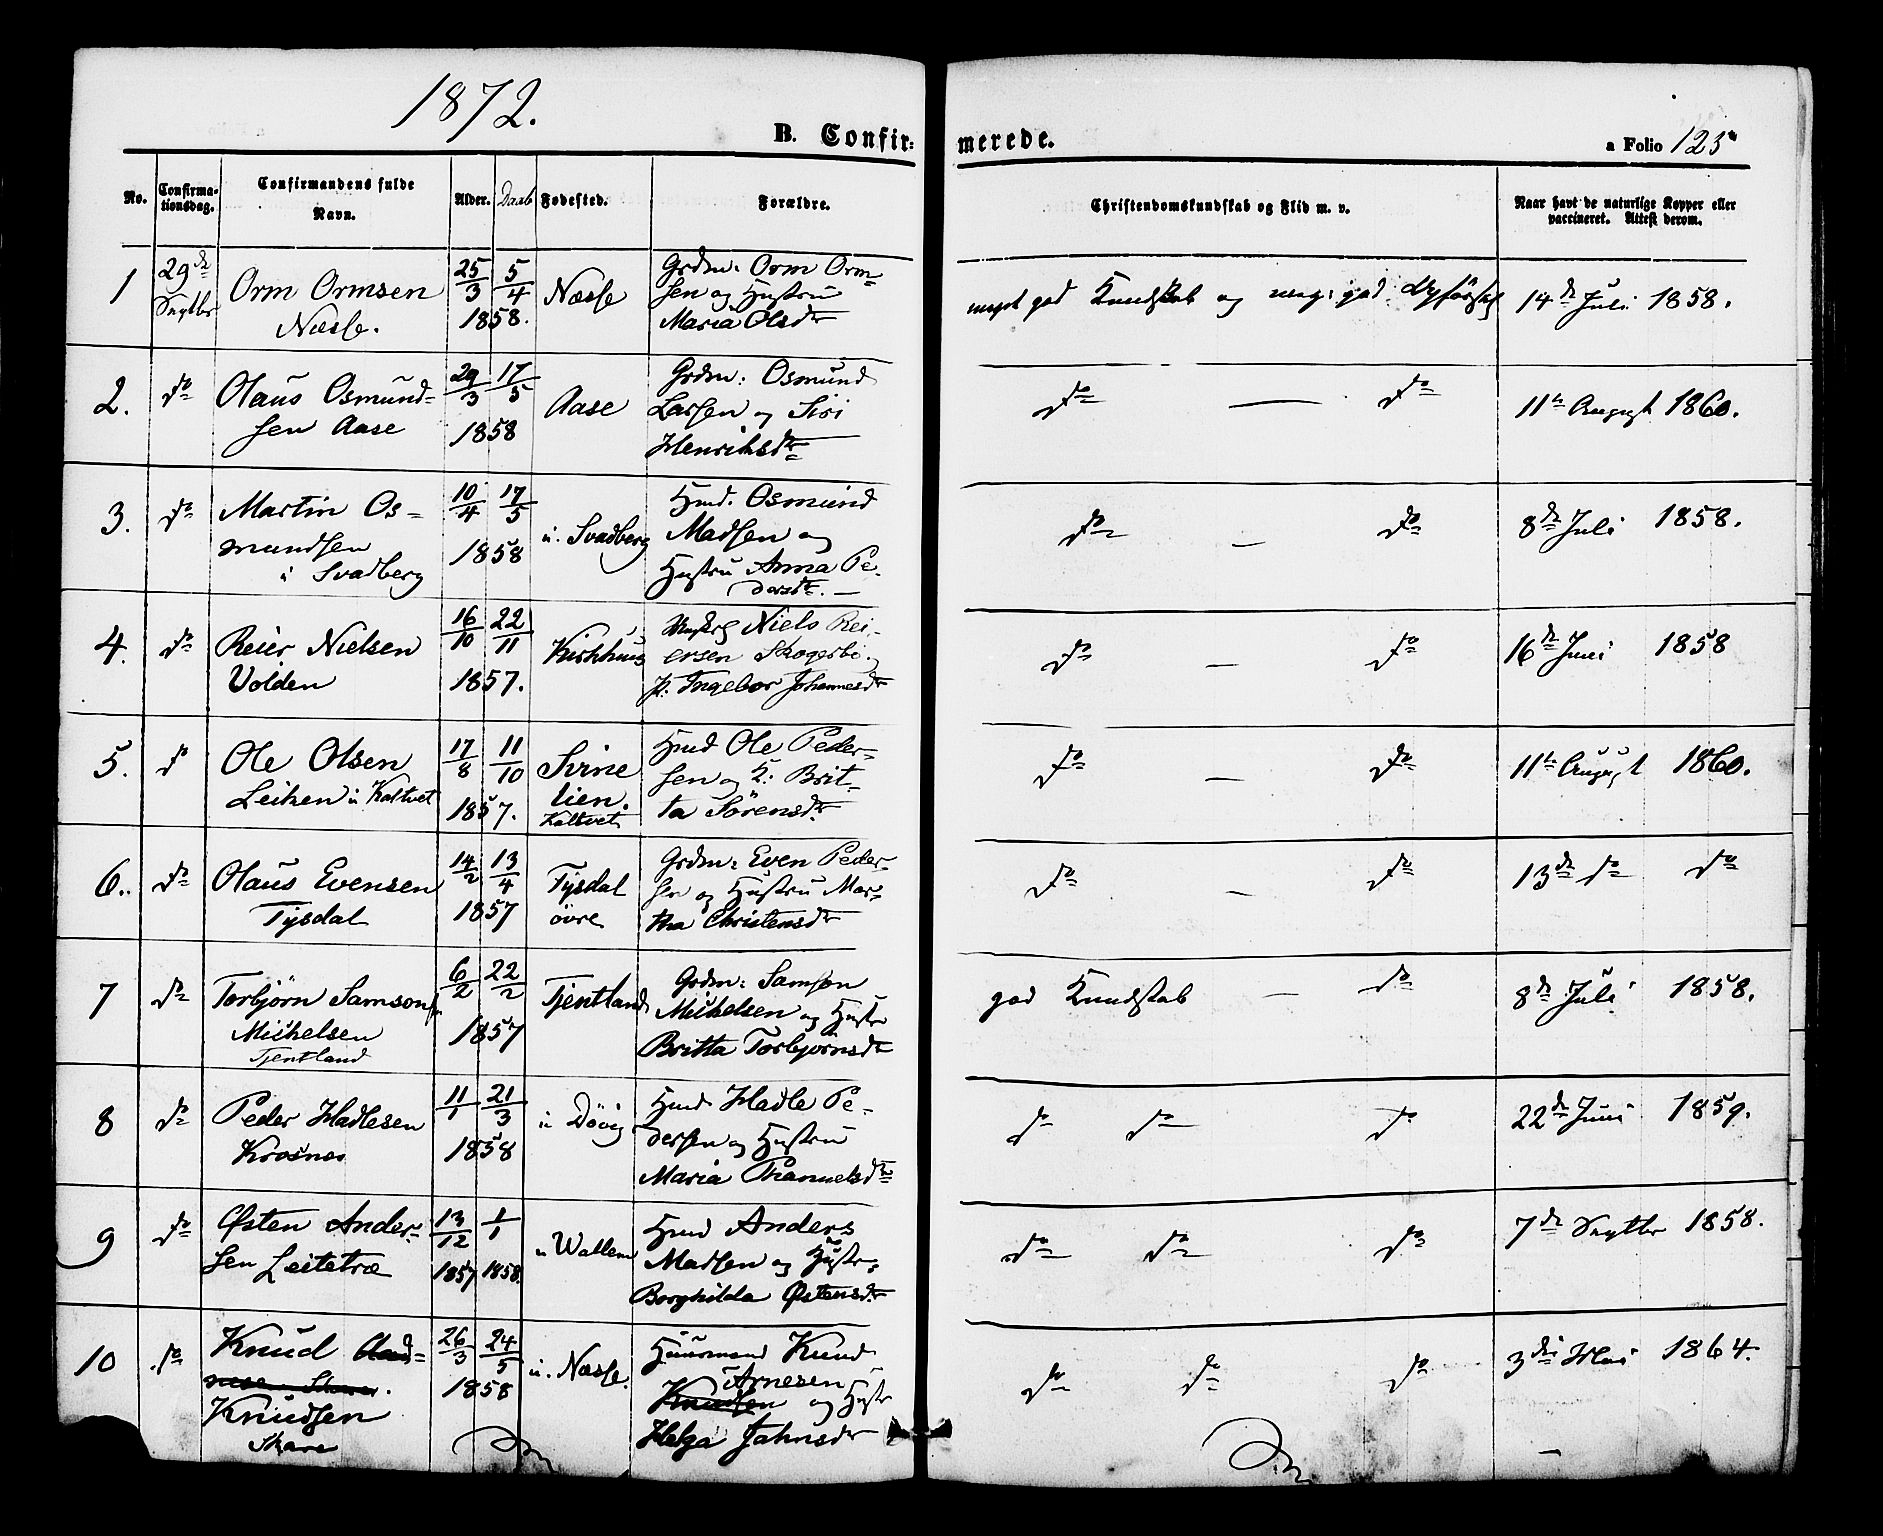 1872.
B. Confirmerede.
a Folio 123
No. Confirmationsdag. Confirmandens fulde Navn. Alder. Daab Fødested. Forældre. Christendomskundskab og Flid m. v. Naar havt de naturlige Kopper eller vaccineret. Attest derom.
1 29de Septbr Orm Ormsen Næsse. 25/3 5/4 1858. Næsse
Grdm: Orm Orm=
sen og Hustru
Maria Olsdr
meget god Kundskab og meg: god 14de Juli 1858.
2. do Olaus Osmund=
sen Aase
29/3 17/5 1858 Aase
Grdm: Osmund
Larsen og Siri
Henriksdtr
do — do 11te August 1860.
3. do Martin Os=
mundsen
i Svadberg
10/4 17/5 1858 u. Svadberg
Hmd. Osmund
Madsen og
Hustru Anna Pe-
dersdtr. —
do — do 8de Juli 1858.
4. do Reier Nielsen
Volden
16/10 22/11 1857. Kirkhuus
Niels Rei-
ersen Skogerbö.
p. Ingebor Johannesdr
do — do 16de Juni 1858
5. do Ole Olsen
Leiken u Kaltvet
17/8 11/10 1857. Svine
lien.
Kaltvet
Hmd Ole Peder=
sen og H: Brit-
ta Sörensdr.
do — do 11te August 1860.
6.. do Olaus Evensen
Tysdal
14/2 13/4 1857 Tysdal
övre
Grdm: Even Peder-
sen og Hustru Mar=
tha Christensdr
do — do 13de do do
7 do Torbjörn Samsons
Mikkelsen
Tjentland
6/2 22/2 1857 Tjentland
Grdm: Samson
Mikkelsen og Hustr
Britta Torbjörnsdr
god Kundskab — do 8de Juli 1858.
8 do Peder Hadlesen
Krosnes
11/1 21/3 1858 u Dövig
Hmd. Hadle Pe-
dersen og Hustru
Maria Thamuelsdtr
do do do 22de Juni 1859.
9 do Østen Ander=
sen Leitetræ
13/12 1/1
1857 1858. u Wallem
Hmd Anders
Madsen og Hustr.
Borghilda Østensdr
do do do 7de Septbr 1858.
10 do Knud
Knudsen
Skare
26/3 24/5 1858 u. Næsse.
Huusmand Knud
Arnesen
Knudsen og Hustr
Helga Jahnsdr
do do do 3die Mai 1864.